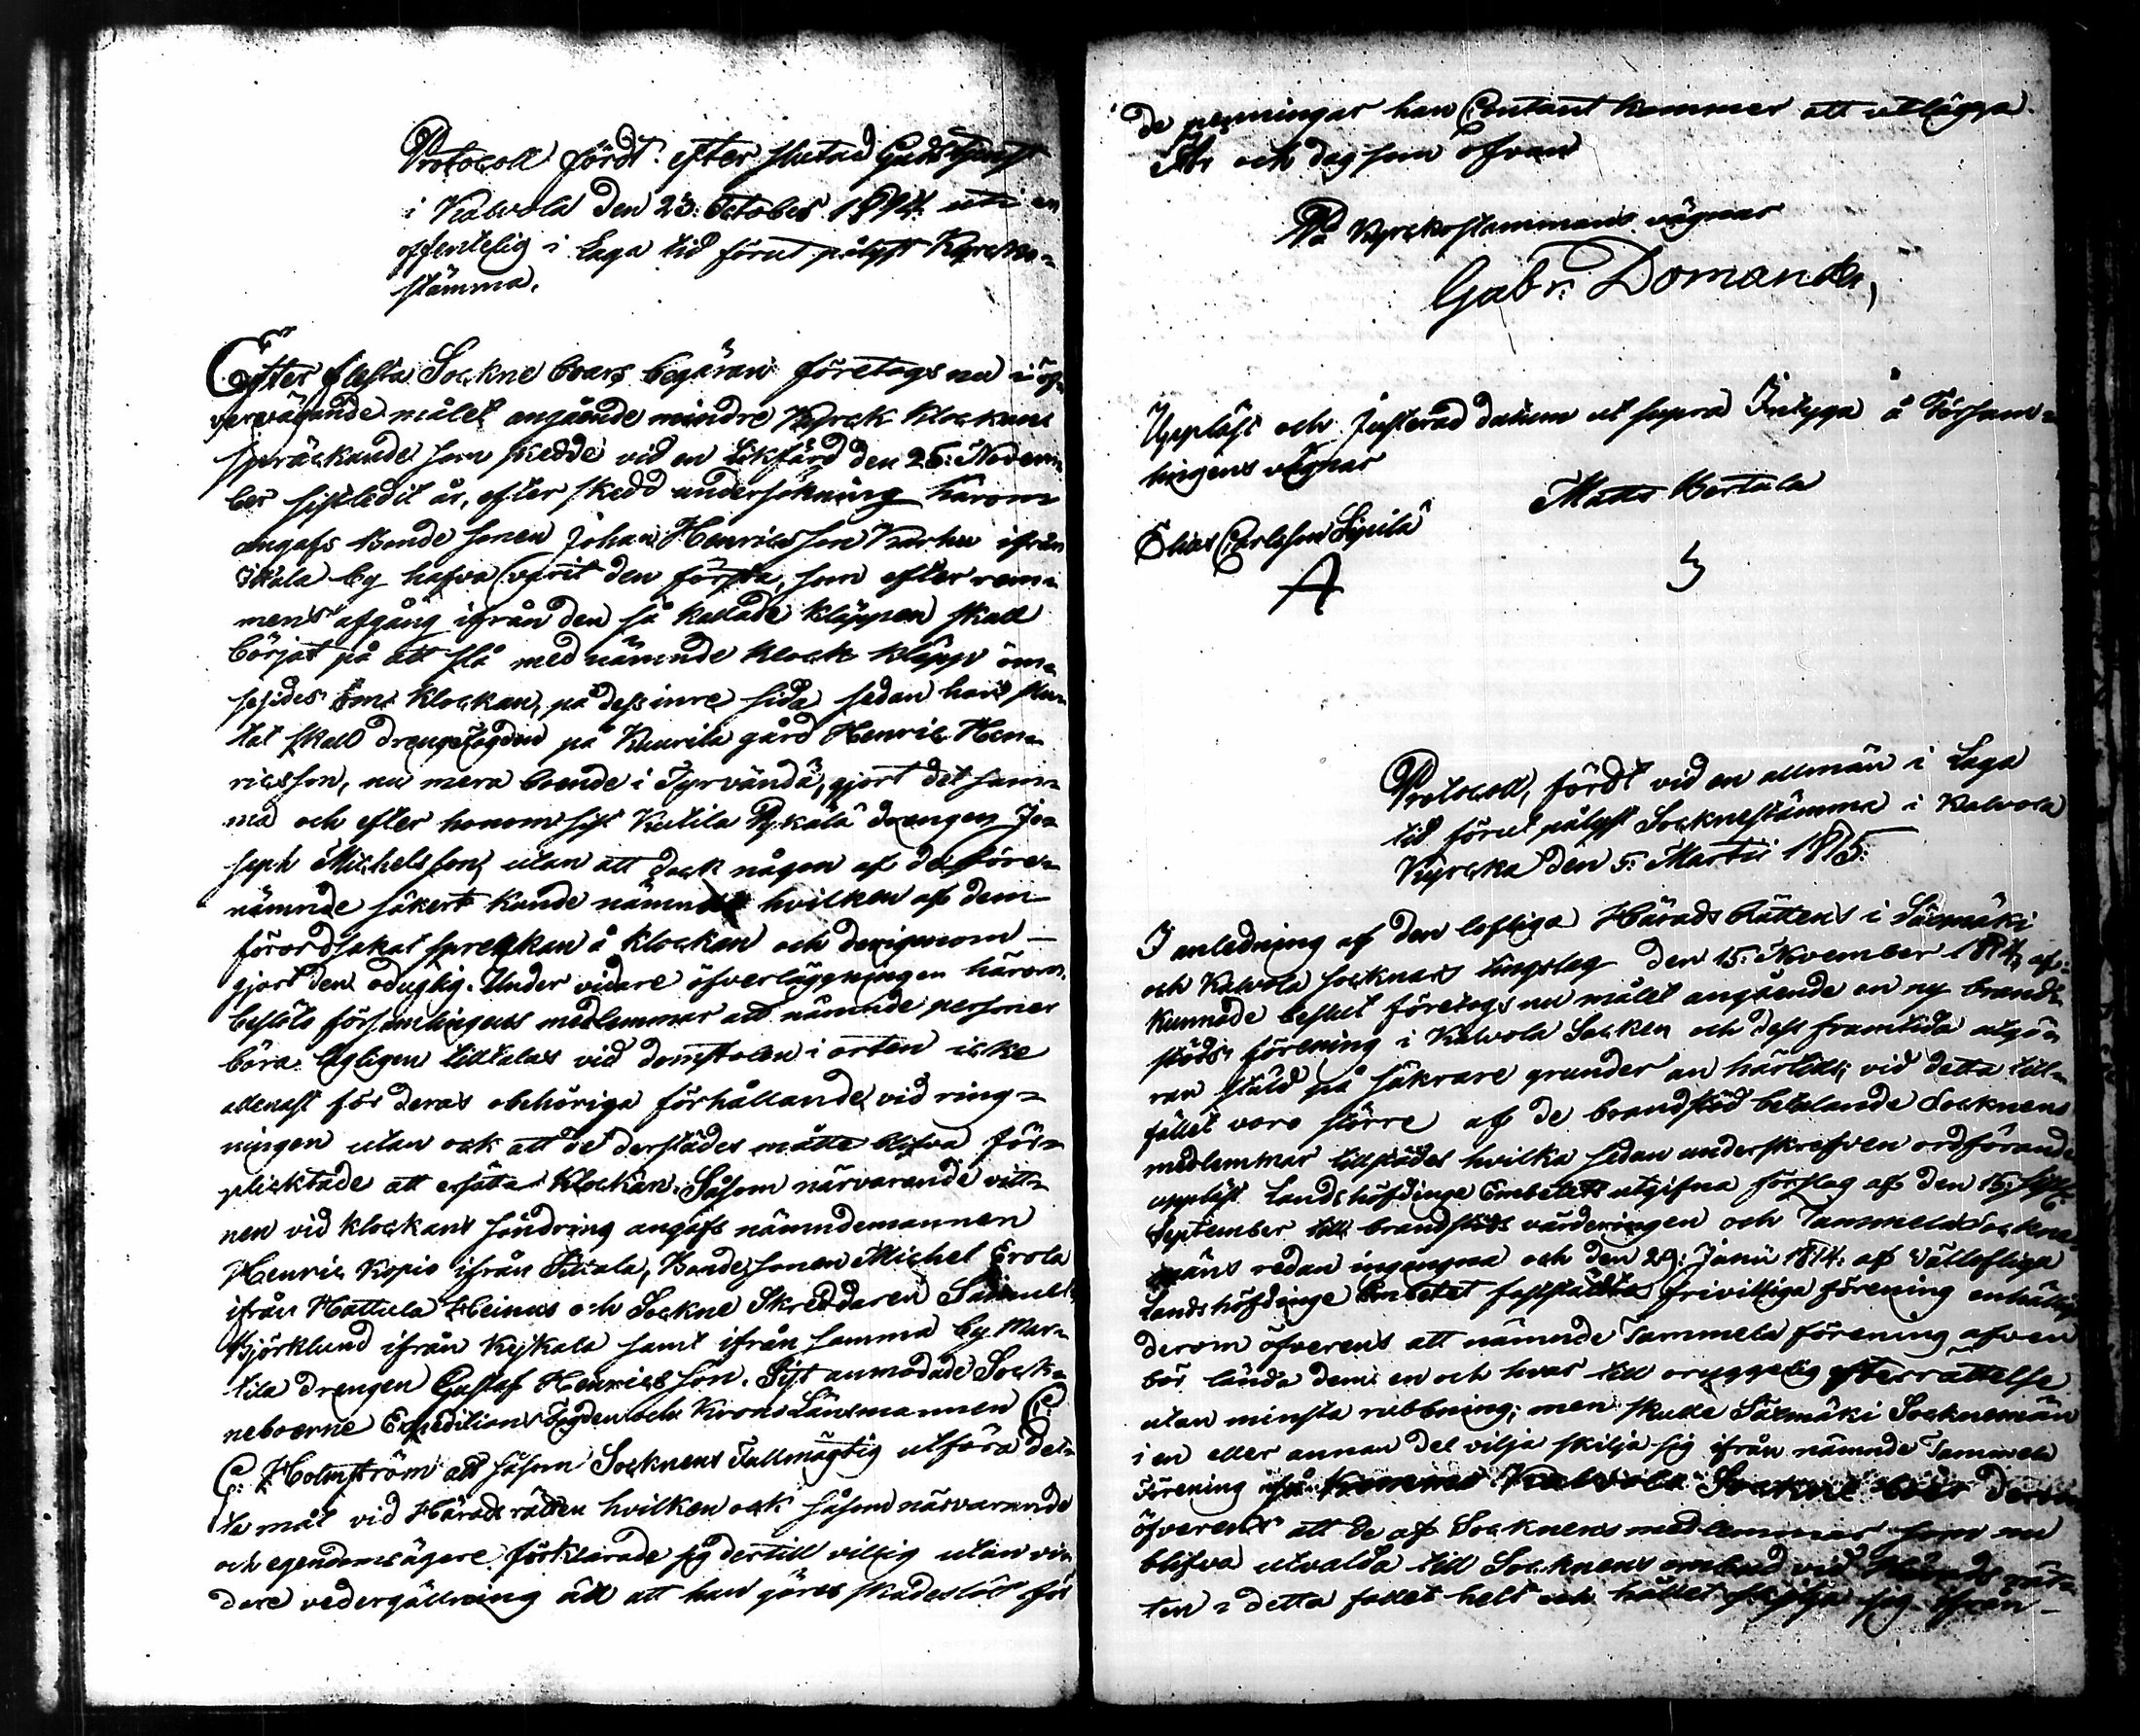 Protocoll fördt efter slutad Gudstjenst
i Kalvola den 23: October 1814. uti en
offentelig i Laga tid förut pålyst Kyrcko-
stämma.
Efter flesta Sockne boars begäran företogs nu i öf-
vervägande målet angående mindre Kyrck klockans
spräckande som skedde vid en likfärd den 25: Novem-
ber sistledit år, efter skedd undersökning härom
angafs Bonde sonen Johan Henricsson Karhu ifrån
Ikala by hafva varit den första, som efter rem-
mens afgång ifrån den så kallade kläppen skall
börjat på att slå med nämnde klock kläpp öm-
sesides om klockan, på dess inre sida sedan han slu-
tat skall drengefogden på Kuurila gård Henric Hen-
ricsson, nu mera boende i Tyrvändä, gjort det sam-
ma och efter honom sist Kutila Pykälä drengen Jo-
seph Michelsson, utan att dock någon af de före-
nämnde säkert kunde nämna hvilken af dem
förordsakat spreckan å klockan och derigenom
gjort den oduglig. Under vidare öfverläggningen härom,
beslöto församlingens medlemmar att nämnde personer
böra lagligen tilltalas vid domstolen i orten icke
allenast för deras obehöriga förhållande vid ring-
ningen utan ock att de derstädes måtte blifva för-
plicktade att ersätta Klockan. Såsom närvarande vitt-
nen vid klockans söndring angafs nämndemannen
Henric Kopio ifrån Sittiala, Bondesonen Michel Erola
ifrån Hattula Heinus och Sockne Skreddaren Samuel
Björklund ifrån Keikala samt ifrån samma by Mar-
tila drengen Gustaf Henricsson. Sist anmodade Sock-
neboerne Expeditions Fogden och Krono Länsmannen C:
G: Holmström att såsom Socknens Fullmägtig utföra det-
ta mål vid Härads rätten hvilken ock såsom närvarande
och egendomsägare förklarade sig dertill villig utan vi-
dare vedergällning än att han göres skadeslös för
de penningar han Contant kommer att utlägga.
År och dag som ofvan
På Kyrckostämmans vägnar
Gabr: Domander,
Uppläst och Justerad datum ut supra Intyga å Försam-
lingens vägnar
Matts Bertula
Elias Carlsson Sipilä
Protocoll, fördt vid en allmän i Laga
tid förut pålyst Socknestämma i Kalvola
Kyrcka den 5: Martii 1815:
I anledning af den lofliga Härads Rättens i Säxmäki
och Kalvola socknars tingslag den 15: November 1814, af-
kunnade beslut företogs nu målet angående en ny brand-
stöds förening i Kalvola Socken och dess framtida utgö-
ran ställd på säkrare grunder än härtills; vid detta till-
fället voro större af de brandstöd betalande Socknens
medlemmar tillstädes hvilka sedan underskrefven ordförande
uppläst Landshöfdinge Embetets utgifna förslag af den 15:
September till brandstöds värderingen och Tammela Sockne-
mäns redan ingångna och den 29: Junii 1814. af Vällofliga
Landshöfdinge Embetet fastställda frivilliga förening enhälligt
derom öfverens att nämnde Tammela förening äfven
bör lända dem en och hvar till oryggelig efterrättelse
utan minsta rubbning; men skulle Säxmäki Socknemän
i en eller annan del vilja skilja sig ifrån nämnde Tammela
Förening så kommo Kalvola Sockne boer derom
öfverens att de af Socknens medlemmar som nu
blifva utvalda till Socknens ombud vid Härads rät-
ten i detta fallet helt och hållet skilja sig ifrån